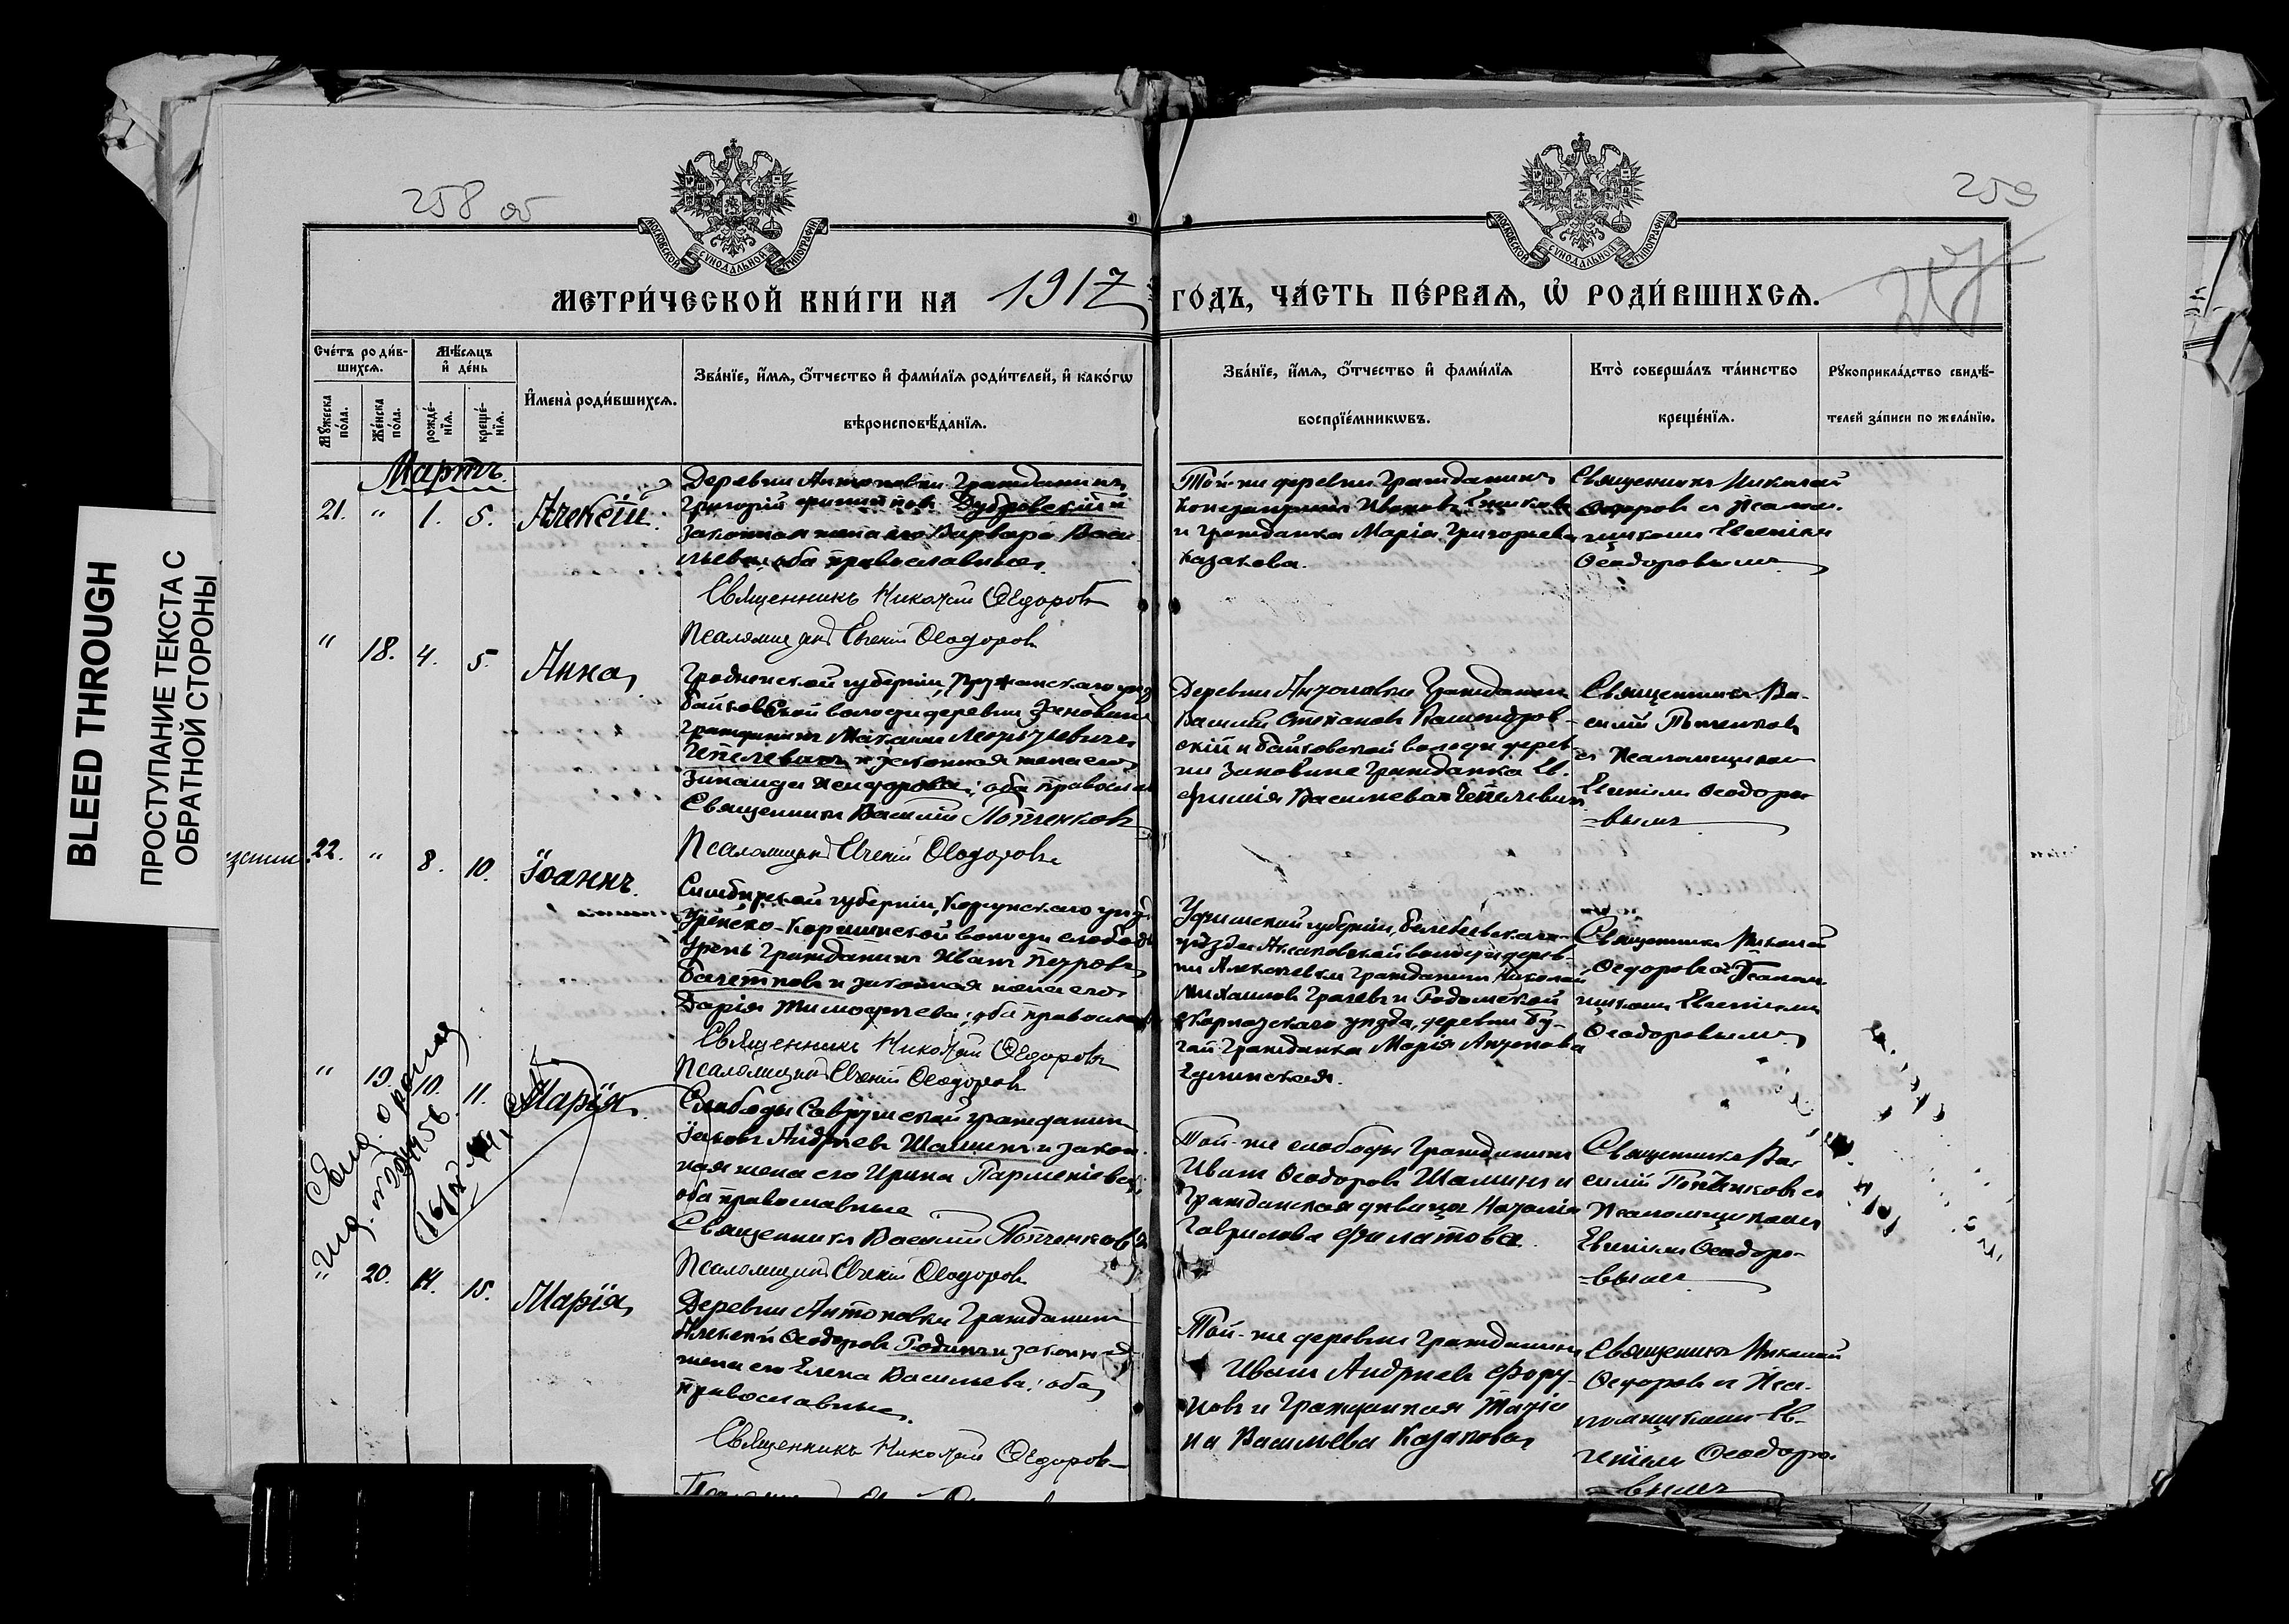 258 об
259
МОСКОВСКОЙ СѴНОДАЛЬНОЙ ТИПОГРАФІИ
МОСКОВСКОЙ СѴНОДАЛЬНОЙ ТИПОГРАФІИ
МЕТРИ́ЧЕСКОЙ КНИ́ГИ НА 1917 ГО́ДЪ, ЧА́СТЬ ПЕ́РВАЯ, Ѡ҆ РОДИ́ВШИХСЯ.
Сче́тъ роди́в-
шихся.
Мѣ́сяцъ
и҆ де́нь
Мꙋ́жеска
по́ла.
Же́нска
по́ла.
рожде́-
нїя.
креще́-
нїя.
И҆мена̀ роди́вшихся.
Зва́нїе, и҆́мя, ѻ҆́тчество и҆ фами́лїя роди́телей, и҆ како́гѡ
вѣроисповѣ́данїя.
Зва́нїе, и҆́мя, ѻ҆́тчество и҆ фами́лїя
воспрїе́мникѡвъ.
Кто̀ соверша́лъ та́инство
креще́нїя.
Рꙋкоприкла́дство свидѣ́-
телей за́писи по жела́нїю.
Мартъ
21. " 1. 5. Алексѣй.
Деревни Антоновки Гражданинъ
Григорій Дубровскій и
законная жена его Варвара Васи
льева; оба православные.
Священникъ Николай Ѳедоровъ
Псаломщикъ Евгеній Ѳеодоровъ
Той-же деревни Гражданинъ
Константинъ Ивановъ
и Гражданка Марія Григорьева
Казакова.
Священникъ Николай
Ѳедоровъ съ Псалом-
щикомъ Евгеніемъ
Ѳеодоровымъ
" 18. 4. 5. Анна
Гродненской губерніи, Пружанскаго уѣзд
Байковской волости деревни Зановины
Гражданинъ Максимъ Леонтьевичъ
Чепелевичъ и законная жена его
Зинаида; оба правосла
Священникъ Василій Потченковъ
Псаломщикъ Евгеній Ѳеодоровъ
Деревни Антоновки Гражданинъ
Василій Степановъ
скій и Байковской волости дерев-
ни Зановине Гражданка Ев-
фимія Васильева Чепелевич
Священникъ Ва-
силій Потченковъ
съ Псаломщикомъ
Евгеніемъ Ѳеодоро
=вымъ
22. " 8. 10. Іоаннъ.
Симбирской губерніи, Корсунскаго уѣзд
Уренско-Карлинской волости слободы
Урень Гражданинъ Иванъ Петровъ
и законная жена его
Дарія Тимофѣева; оба правосл
Священникъ Николай Ѳедоровъ
Псаломщикъ Евгеній Ѳеодоровъ
Уфимской губерніи, Белебеевскаго
уѣзда Аксаковской волости дерев-
ни Алексѣевки Гражданинъ Николай
Михаиловъ Грачевъ и
уѣзда, деревни Бу-
гай Гражданка Марія Антонова
Священникъ Николай
Ѳедоровъ съ Псалом
щикомъ Евгеніемъ
Ѳеодоровымъ
" 19. 10. 11. Марія
Слободы Саврушской гражданинъ
Іаковъ Андреевъ Шашинъ и закон
ная жена его Ирина Парменіева;
оба православные
Священникъ Василій Потченковъ
Псаломщикъ Евгеній Ѳеодоровъ
Той-же слободы Гражданинъ
Иванъ Ѳеодоровъ Шашинъ и
Гражданская дѣвица Наталія
Гаврилова Филатова
Священникъ Ва
силій Потченковъ съ
Псаломщикомъ
Евгеніемъ Ѳеодоро-
=вымъ
" 20. 14. 15. Марія
Деревни Антоновки Гражданинъ
Алексѣй Ѳеодоровъ Годинъ и законная
жена его Елена Васильева; оба
православные.
Священникъ Николай Ѳедоровъ
Той-же деревни Гражданинъ
Иванъ Андреевъ
и Гражданка Татія
на Васильева Казакова
Священникъ Николай
Ѳедоровъ съ Пса-
ломщикомъ Ев-
геніемъ Ѳеодоро
=вымъ
BLEED THROUGH
ПРОСТУПАНИЕ ТЕКСТА С
ОБРАТНОЙ СТОРОНЫ